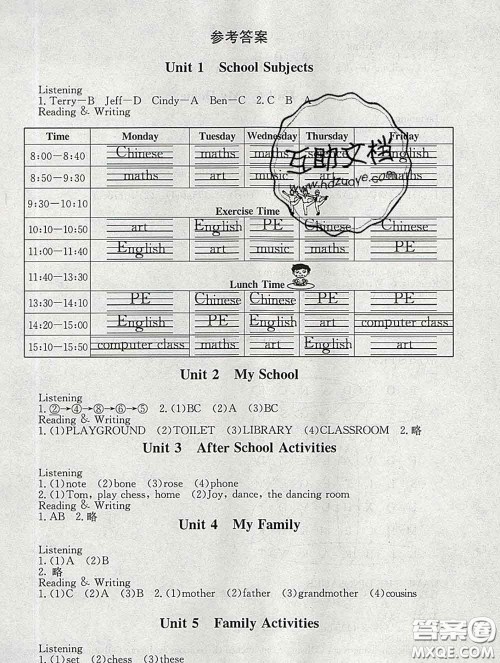 参考答案
Unit 1 School Subjects
Listening
1. Terry—B Jeff—D Cindy—A Ben—C 2. C B A
Reading & Writing
Time Monday Tuesday Wednesday Thursday Friday
8:00—8:40 Chinese maths maths English
8:50—9:30 maths art music maths
9:30—10:10
Exercise Time
10:10—10:50 art English PE Chinese Chinese
11:00—11:40 English art music maths PE
11:40—13:30
Lunch Time
13:30—14:10 PE Chinese Chinese PE PE
14:20—15:00 English PE English art computer class
15:10—15:50 computer class maths art English art
Unit 2 My School
Listening
1. ②→④→⑧→⑥→⑤ 2. (1)BC (2)A (3)BC
Reading & Writing
1. (1)PLAYGROUND (2)TOILET (3)LIBRARY (4)CLASSROOM 2. 略
Unit 3 After School Activities
Listening
1. (1)note (2)bone (3)rose (4)phone
2. (1)Tom, play chess, home (2)Joy, dance, the dancing room
Reading & Writing
1. AB 2. 略
Unit 4 My Family
Listening
1. (1)A (2)B
2. 略
Reading & Writing
1. (1)C (2)A (3)B 2. (1)mother (2)father (3)grandmother (4)cousins
Unit 5 Family Activities
Listening
1. (1)set (2)chess (3)these
互助文档
www.hdzuoye.com
答案圈
MXQE.COM